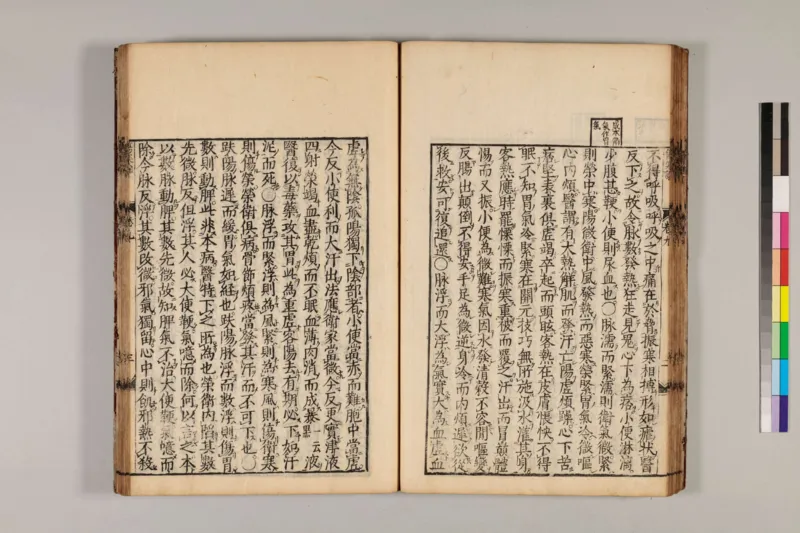 不得呼吸呼吸之中痛在於脅振寒相搏形如瘧狀醫
反下之故令脉數發熱狂走見鬼心下為痞小便淋瀝
少腹甚鞕小便則尿血也○脉濡而緊濡則衞氣微緊
則榮中寒陽微衞中風發熱而惡寒榮緊胃氣冷微嘔
心内煩醫謂有大熱解肌而發汗亡陽虚煩躁心下苦
痞堅表裏俱虚竭卒起而頭眩客熱在皮膚悵怏不得
眠不知胃氣冷緊寒在關元技巧無所施汲水灌其身
客熱應時罷慄慄而振寒重被而覆之汗出而冒巔體
惕而又振小便為微難寒氣因水發清穀不容閒嘔變
反腸出顛倒不得安手足為微逆身冷而内煩遲欲從
後救安可復追還○脉浮而大浮為氣實大為血虚血
虚為無陰孤陽獨下陰部者小便當赤而難胞中當虚
今反小便利而大汗出法應衞家當微今反更實津液
四射榮竭血盡乾煩而不眠血薄肉消而成暴一云液
醫復以毒藥攻其胃此為重虚客陽去有期必下如汙
泥而死○脉浮而緊浮則為風緊則為寒風則傷衞寒
則傷榮榮衞俱病骨節煩疼當發其汗而不可下也○
趺陽脉遲而緩胃氣如經也趺陽脉浮而數浮則傷胃
數則動脾此非本病醫特下之所為也榮衞内陷其數
先微脉反但浮其人必大便鞕氣噫而除何以言之本
以數脉動脾其數先微故知脾氣不治大便鞕氣噫而
除今脉反浮其數改微邪氣獨留心中則飢邪熱不殺